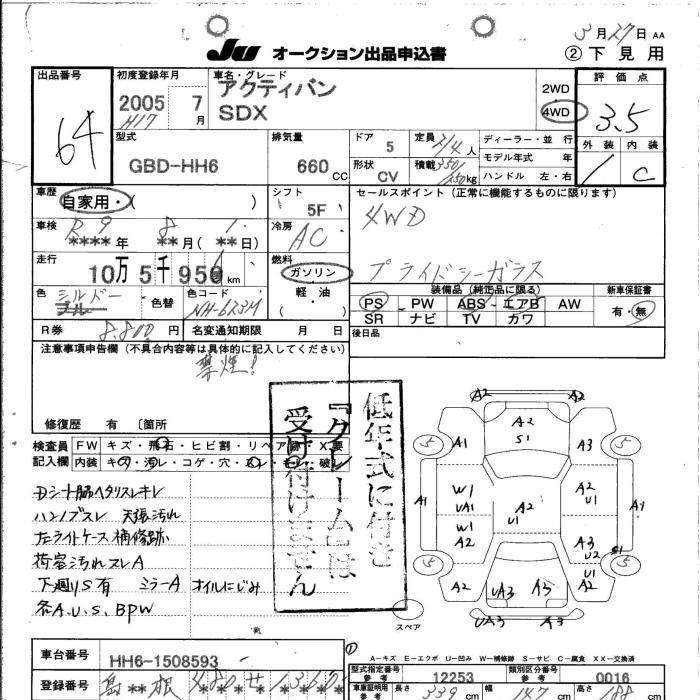 3月27日 AA
JU オークション出品申込書
② 下見用
出品番号
64
初度登録年月
2005 7月
H17
車名・グレード
アクティバン
SDX
2WD
4WD
評価点
3.5
外装 内装
1 C
型式
GBD-HH6
排気量
660 CC
ドア 5
形状 CV
定員 2/4人
積載 350/250kg
ディーラー・並行
モデル年式 年
ハンドル 左・右
車歴
自家用・( )
シフト
5F
セールスポイント (正常に機能するものに限ります)
4WD
プライバシーガラス
車検
R9 8 1
****年 **月(**日)
冷房
AC
走行
10万5千956km
燃料
ガソリン
軽・油
( )
色
シルバー
ブルー
色替
色コード
NH-623M
装備品(純正品に限る)
PS PW ABS エアB AW
SR ナビ TV カワ
新車保証書
有・無
R券 8,800円
名変通知期限 月 日
後日品
注意事項申告欄 (不具合内容等は具体的に記入してください)
禁煙!
修復歴 有 〔箇所
検査員
記入欄
FW キズ・飛石・ヒビ割・リペア跡・X要
内装 キズ・汚レ・コゲ・穴・スレ・キレ・破レ
低年式に付き
『クレーム』は
受け付けません
Dシート脇ヘタリスレキレ
ハンドブスレ 天張汚れ
左ライトケース補修跡
荷室汚れスレA
下廻りS有 ミラーA オイルにじみ
各A.U.S.BPW
A2 A2
5 5
A1 A2 S1 A3
A1 W1 UA1 W1 A2 A2 U1 A2 U1 A3 U2 S1 A1
5 5
A2 UA3 A3 U1 A2
UA3 A3
スペア
A－キズ E－エクボ U－凹み W－補修跡 S－サビ C－腐食 XX－交換済
車台番号
HH6-1508593
型式指定番号
参考 12253
類別区分番号
参考 0016
登録番号
島**根 480せ
車庫証明用
参考
長さ 339cm
幅 147cm
高さ 188cm